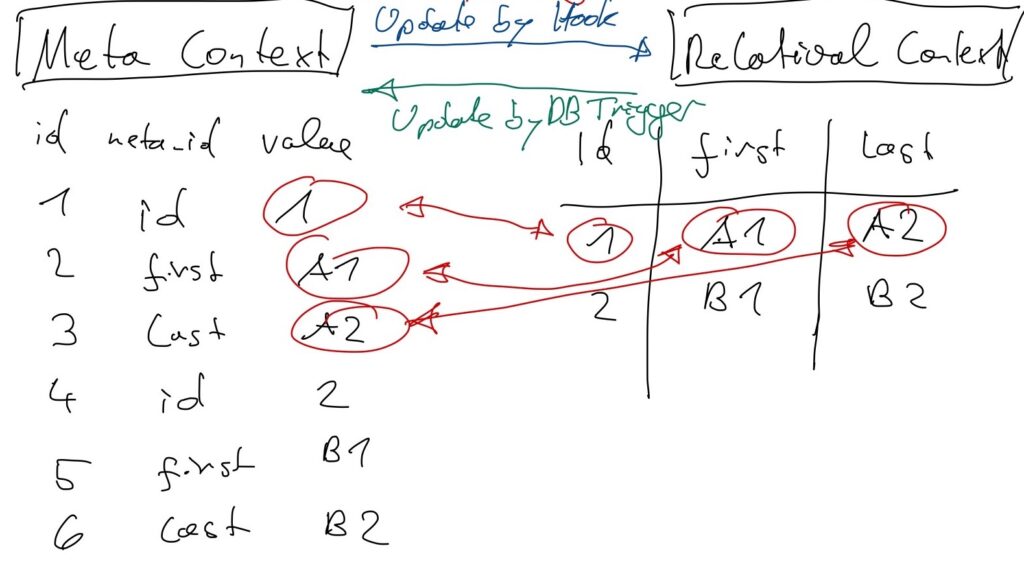 Meta Context
Update by Hook
Relational Context
Update by DB Trigger
id meta_id value
1 id 1
2 first A1
3 last A2
4 id 2
5 first B1
6 last B2
Id first last
1 A1 A2
2 B1 B2